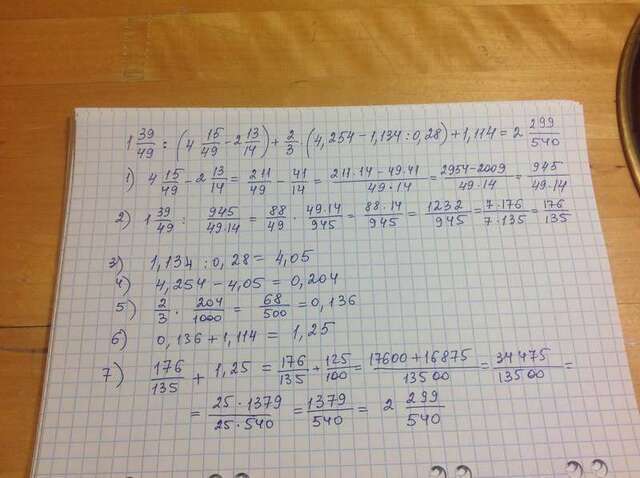 1 39/49 : (4 15/49 - 2 13/14) + 2/3 · (4,254 - 1,134 : 0,28) + 1,114 = 2 299/540
1) 4 15/49 - 2 13/14 = 211/49 - 41/14 = 211·14 - 49·41/49·14 = 2954-2009/49·14 = 945/49·14
2) 1 39/49 : 945/49·14 = 88/49 · 49·14/945 = 88·14/945 = 1232/945 = 7·176/7·135 = 176/135
3) 1,134 : 0,28 = 4,05
4) 4,254 - 4,05 = 0,204
5) 2/3 · 204/1000 = 68/500 = 0,136
6) 0,136 + 1,114 = 1,25
7) 176/135 + 1,25 = 176/135 + 125/100 = 17600 + 16875/13500 = 34475/13500 =
= 25·1379/25·540 = 1379/540 = 2 299/540